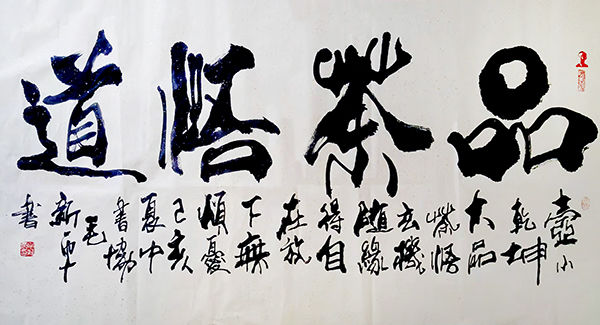 品茶悟道
壺小
乾坤
大品
茶悟
玄機
隨緣
得自
在放
下無
煩憂
己亥
夏中
書協
毛
新
書